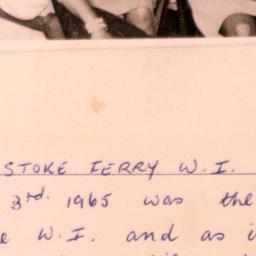 STOKE FERRY W.I.
3rd. 1965 was the
W.I. and as